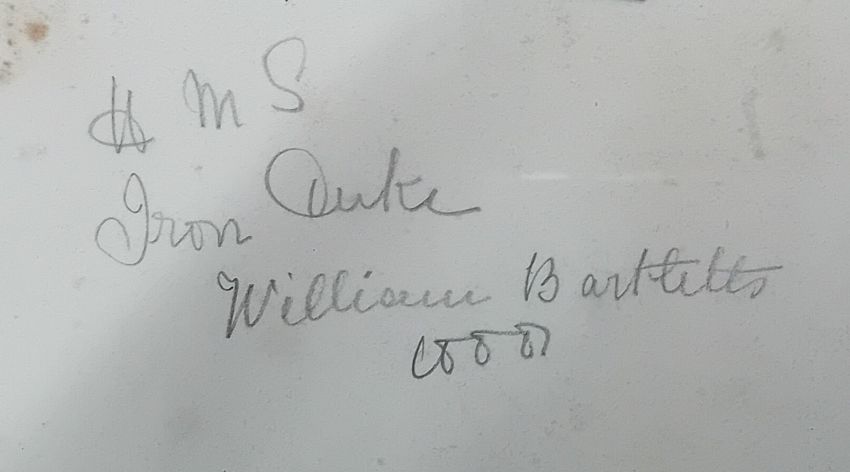 H M S
Iron Duke
William Bartletts